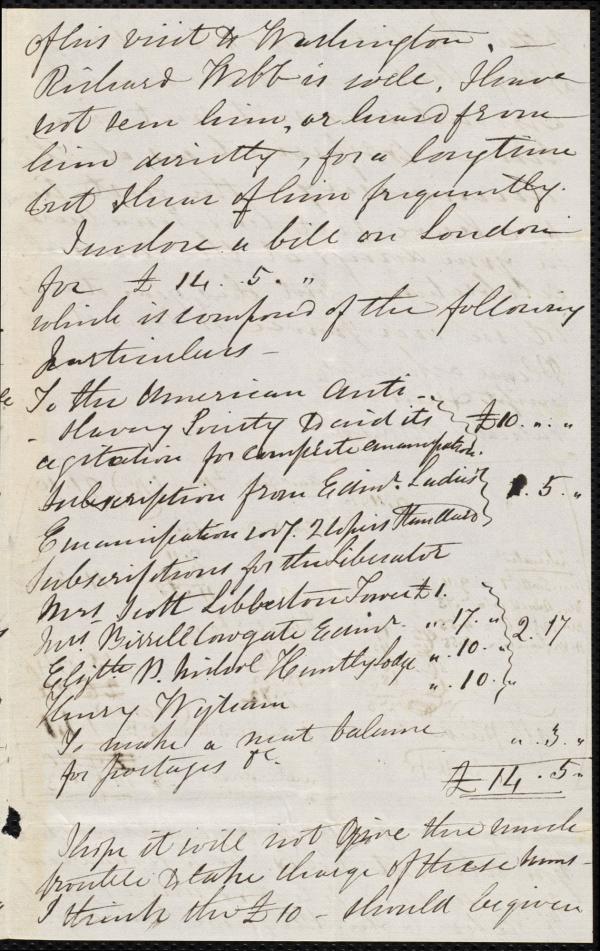 of his visit to Washington. —
Richard Webb is well, I have
not seen him, or heard from
him directly, for a long time
but I hear of him frequently.
I indose a bill on London
for £ 14 . 5 . "
which is composed of the following
particulars —
To the American Anti -
- Slavery Society to aid its
agitation for complete emancipation. £10 . " . "
Subscription from Edinr. Ladies
Emancipation Socy. 2 copies Standard 1 . 5 . "
Subscriptions for the Liberator
Mrs Scott Libberton Tower £1.
Mrs. Birrell Cowgate Edinr. " . 17 . "
Elizth. P. Nichol Huntly Lodge " . 10 . " 2 . 17
Henry Wigham " . 10 . "
To make a neat balance
for postages &c. " . 3 . "
£ 14 . 5 "
I hope it will not give thee much
trouble to take charge of these sums -
I think the £10 - should be given